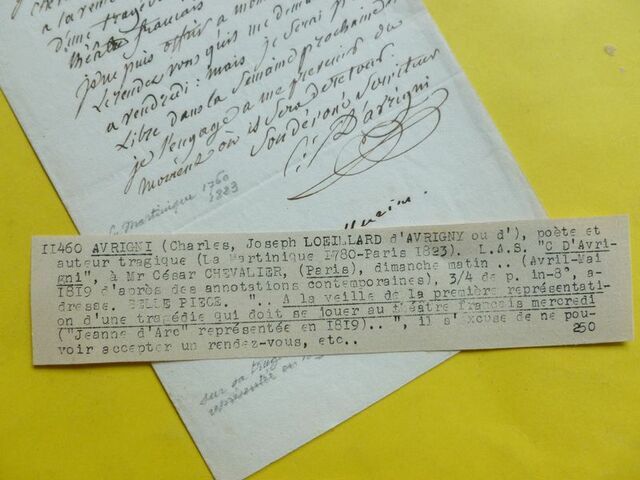 a la
d'une tragéd
théâtre français
je ne puis offrir a mon
le rendez vous qu'il me dema
a vendredi : mais je serai p
Libre dans la semaine prochaine
je l'engage a me prevenir du
moment où il sera de retour.
Son dévoué Serviteur
C. D'avrigni
Martinique 1760
1823
II460 AVRIGNI (Charles, Joseph LOEILLARD d'AVRIGNY ou d'), poète et
auteur tragique (La Martinique I780-Paris I823). L.A.S. "C D'Avri-
gni", à Mr César CHEVALIER, (Paris), dimanche matin .. (Avril-Mai
I819 d'après des annotations contemporaines), 3/4 de p. in-8°, a-
dresse. BELLE PIECE. ".. A la veille de la première représentati-
on d'une tragédie qui doit se jouer au théâtre français mercredi
("Jeanne d'Arc" représentée en I819)..", il s'excuse de ne pou-
voir accepter un rendez-vous, etc..
250
sur sa trag
représentée en